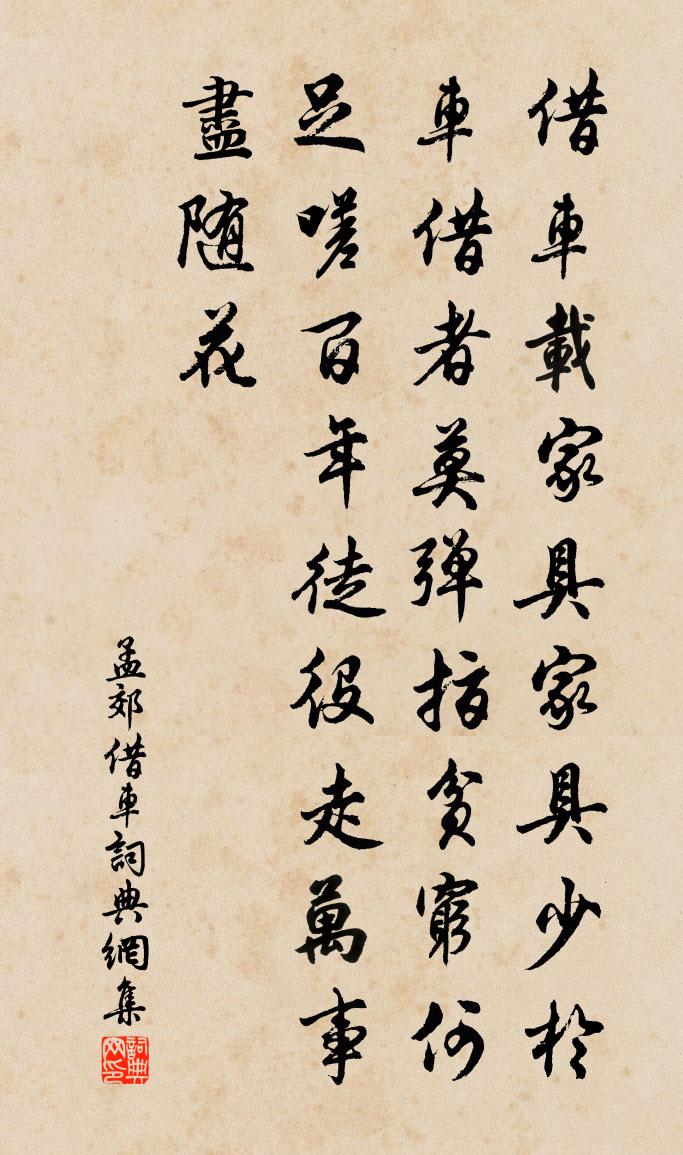 借車載家具家具少於
車借者莫弾指貧窮何
足嗟百年徒役走萬事
盡随花
孟郊借車詞典網集
詞典
网印